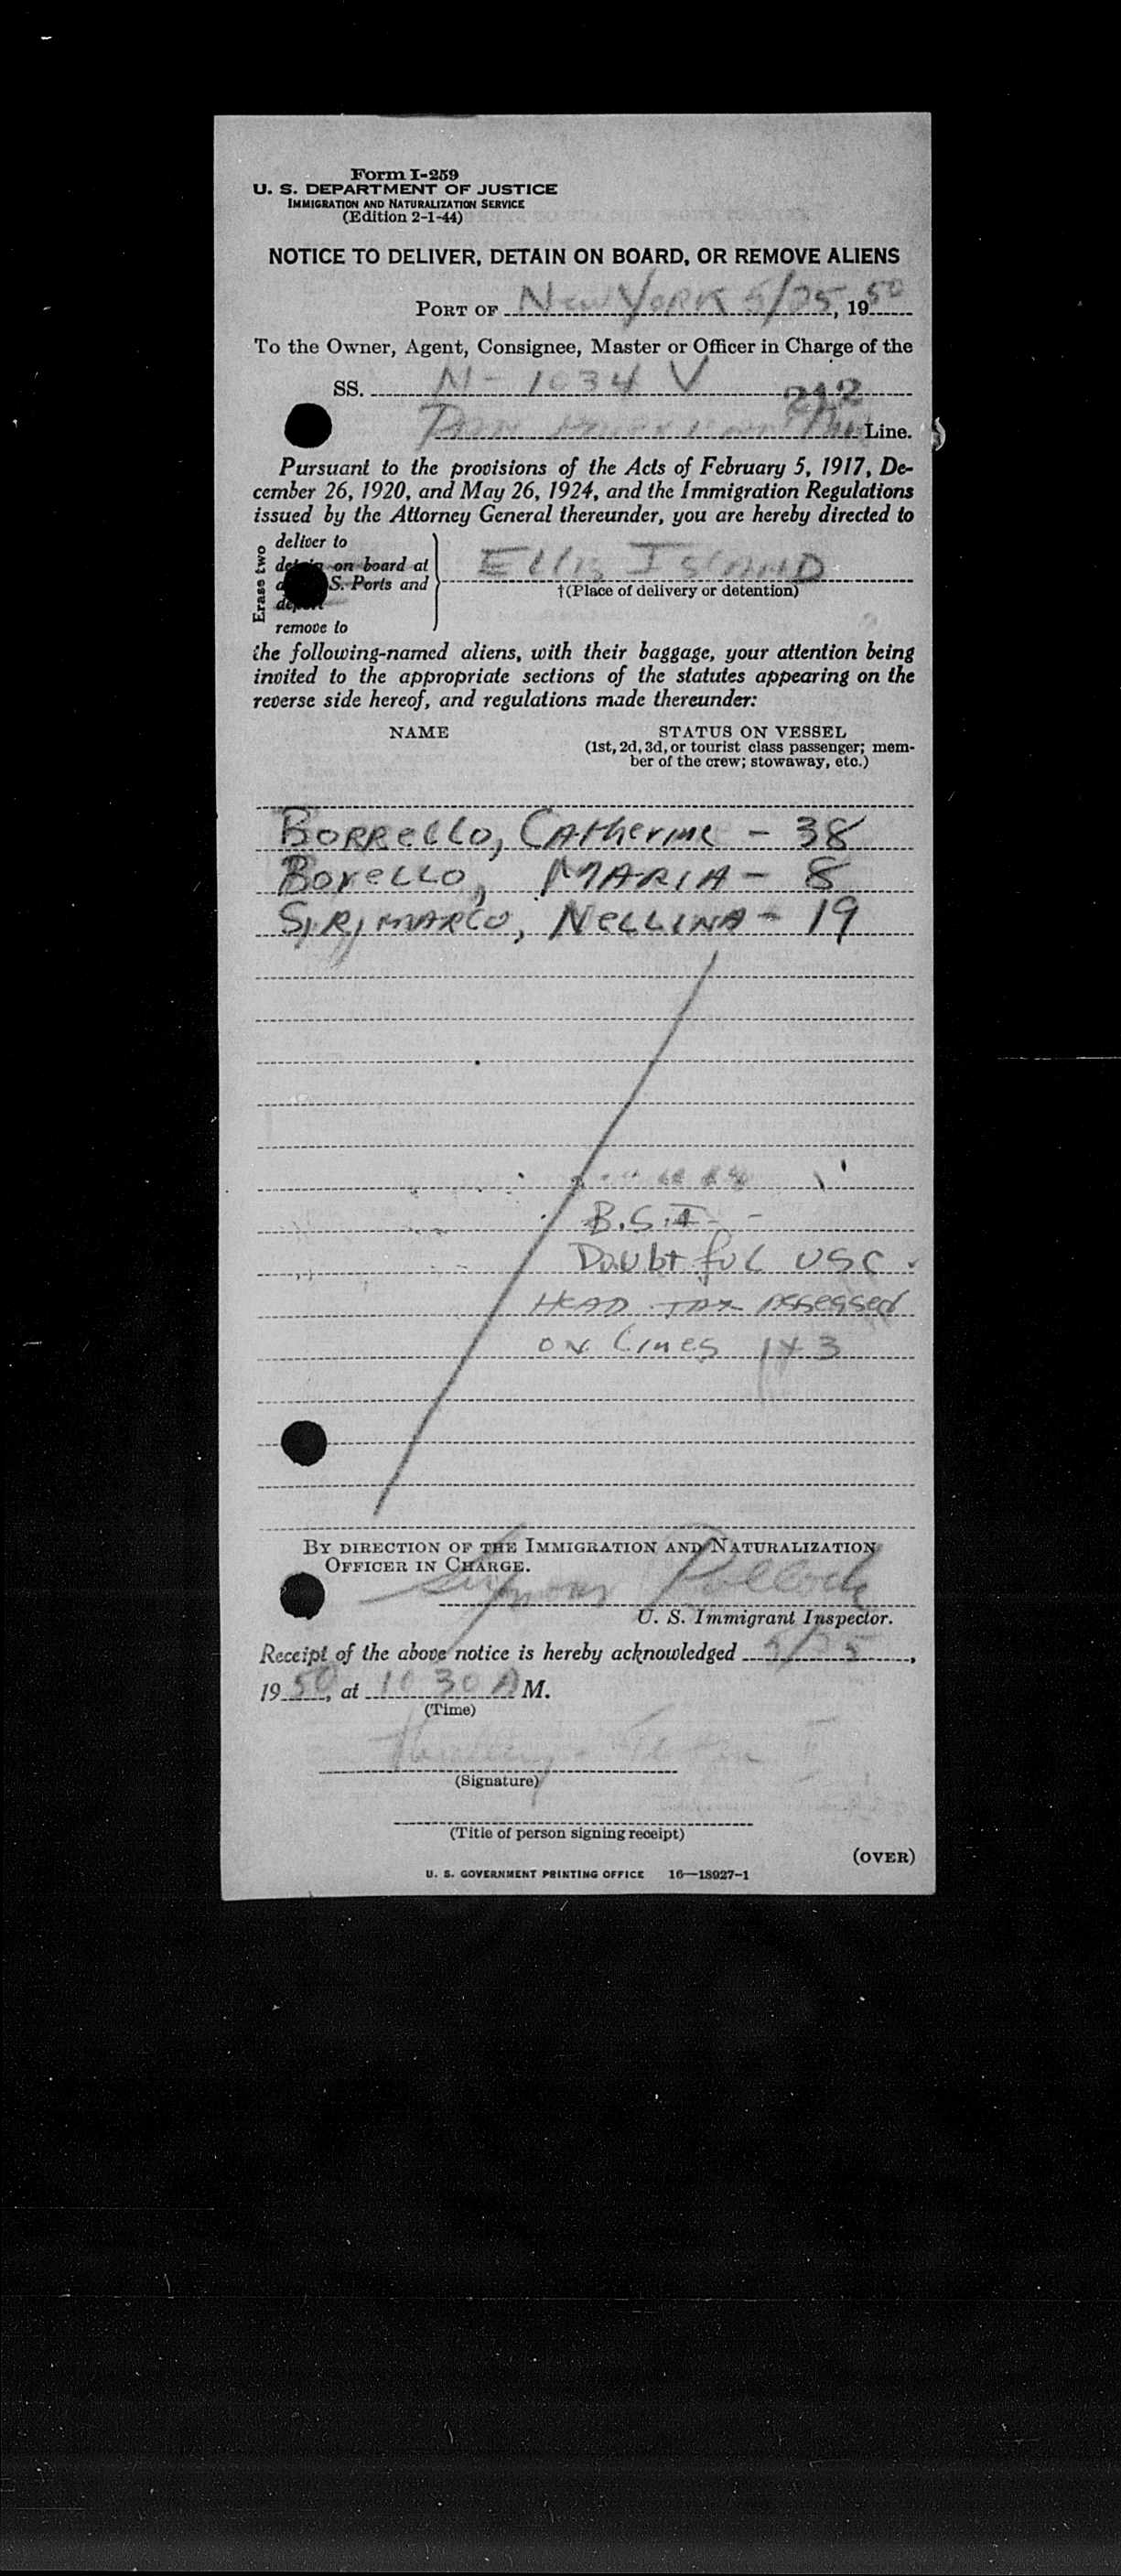 Form I-259
U. S. DEPARTMENT OF JUSTICE
IMMIGRATION AND NATURALIZATION SERVICE
(Edition 2-1-44)
NOTICE TO DELIVER, DETAIN ON BOARD, OR REMOVE ALIENS
PORT OF New YORK 5/25, 1950
To the Owner, Agent, Consignee, Master or Officer in Charge of the
SS. N-1034 V
212
Line.
Pursuant to the provisions of the Acts of February 5, 1917, De-
cember 26, 1920, and May 26, 1924, and the Immigration Regulations
issued by the Attorney General thereunder, you are hereby directed to
Erase two
deliver to
on board at
S. Ports and
remove to
Ellis Island
†(Place of delivery or detention)
the following-named aliens, with their baggage, your attention being
invited to the appropriate sections of the statutes appearing on the
reverse side hereof, and regulations made thereunder:
NAME
STATUS ON VESSEL
(1st, 2d, 3d, or tourist class passenger; mem-
ber of the crew; stowaway, etc.)
BORRello, CAtherine - 38
Borello, MARIA - 8
SIRIMARCO, NELLINA - 19
B.S.I -
Doubtful USC
HEAD TAX Assessed
on lines 1 + 3
BY DIRECTION OF THE IMMIGRATION AND NATURALIZATION
OFFICER IN CHARGE.
Pollock
U. S. Immigrant Inspector.
Receipt of the above notice is hereby acknowledged 5/25,
1950, at 10 30 A M.
(Time)
(Signature)
(Title of person signing receipt)
(OVER)
U. S. GOVERNMENT PRINTING OFFICE 16—18927-1